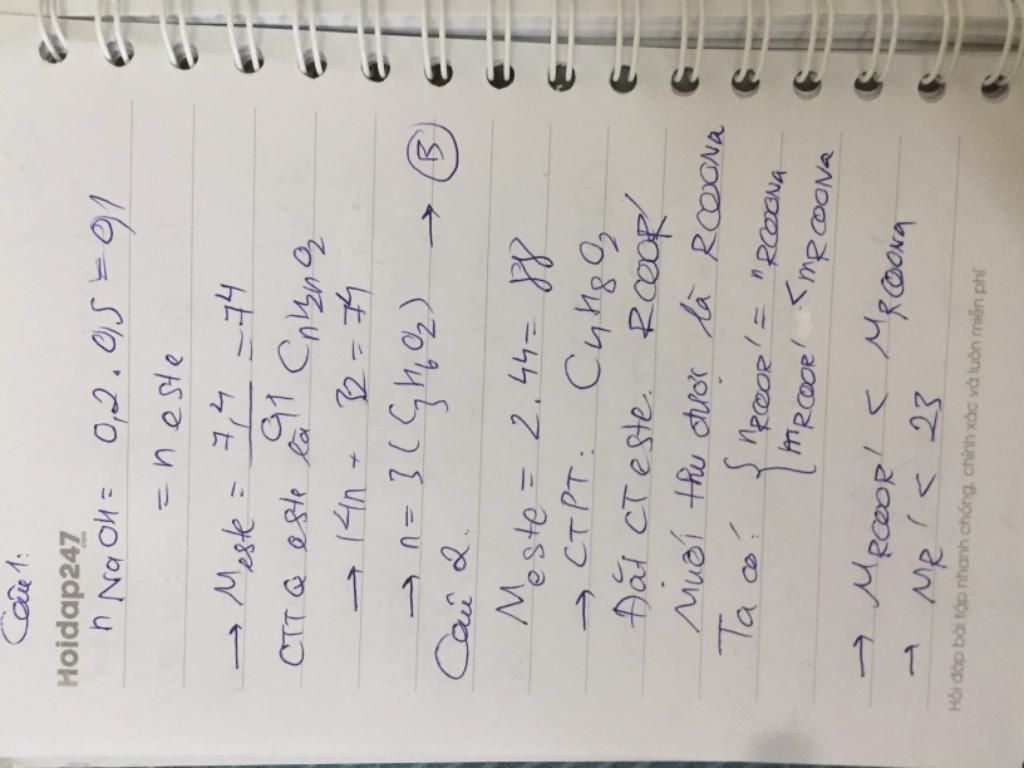 Câu 1:
Hoidap247
.com
n NaOH = 0,2 . 0,5 = 0,1
= n este
→ Meste = 7,4 / 0,1 = 74
CTTQ este là CnH2nO2
→ 14n + 32 = 74
→ n = 3 (C3H6O2) → B
Câu 2.
Meste = 2.44 = 88
→ CTPT: C4H8O2
Đặt CT este. RCOOR'
Muối thu được là RCOONa
Ta có: { nRCOOR' = nRCOONa
mRCOOR' < mRCOONa
→ MRCOOR' < MRCOONa
→ MR' < 23
Hỏi đáp bài tập nhanh chóng, chính xác và luôn miễn phí